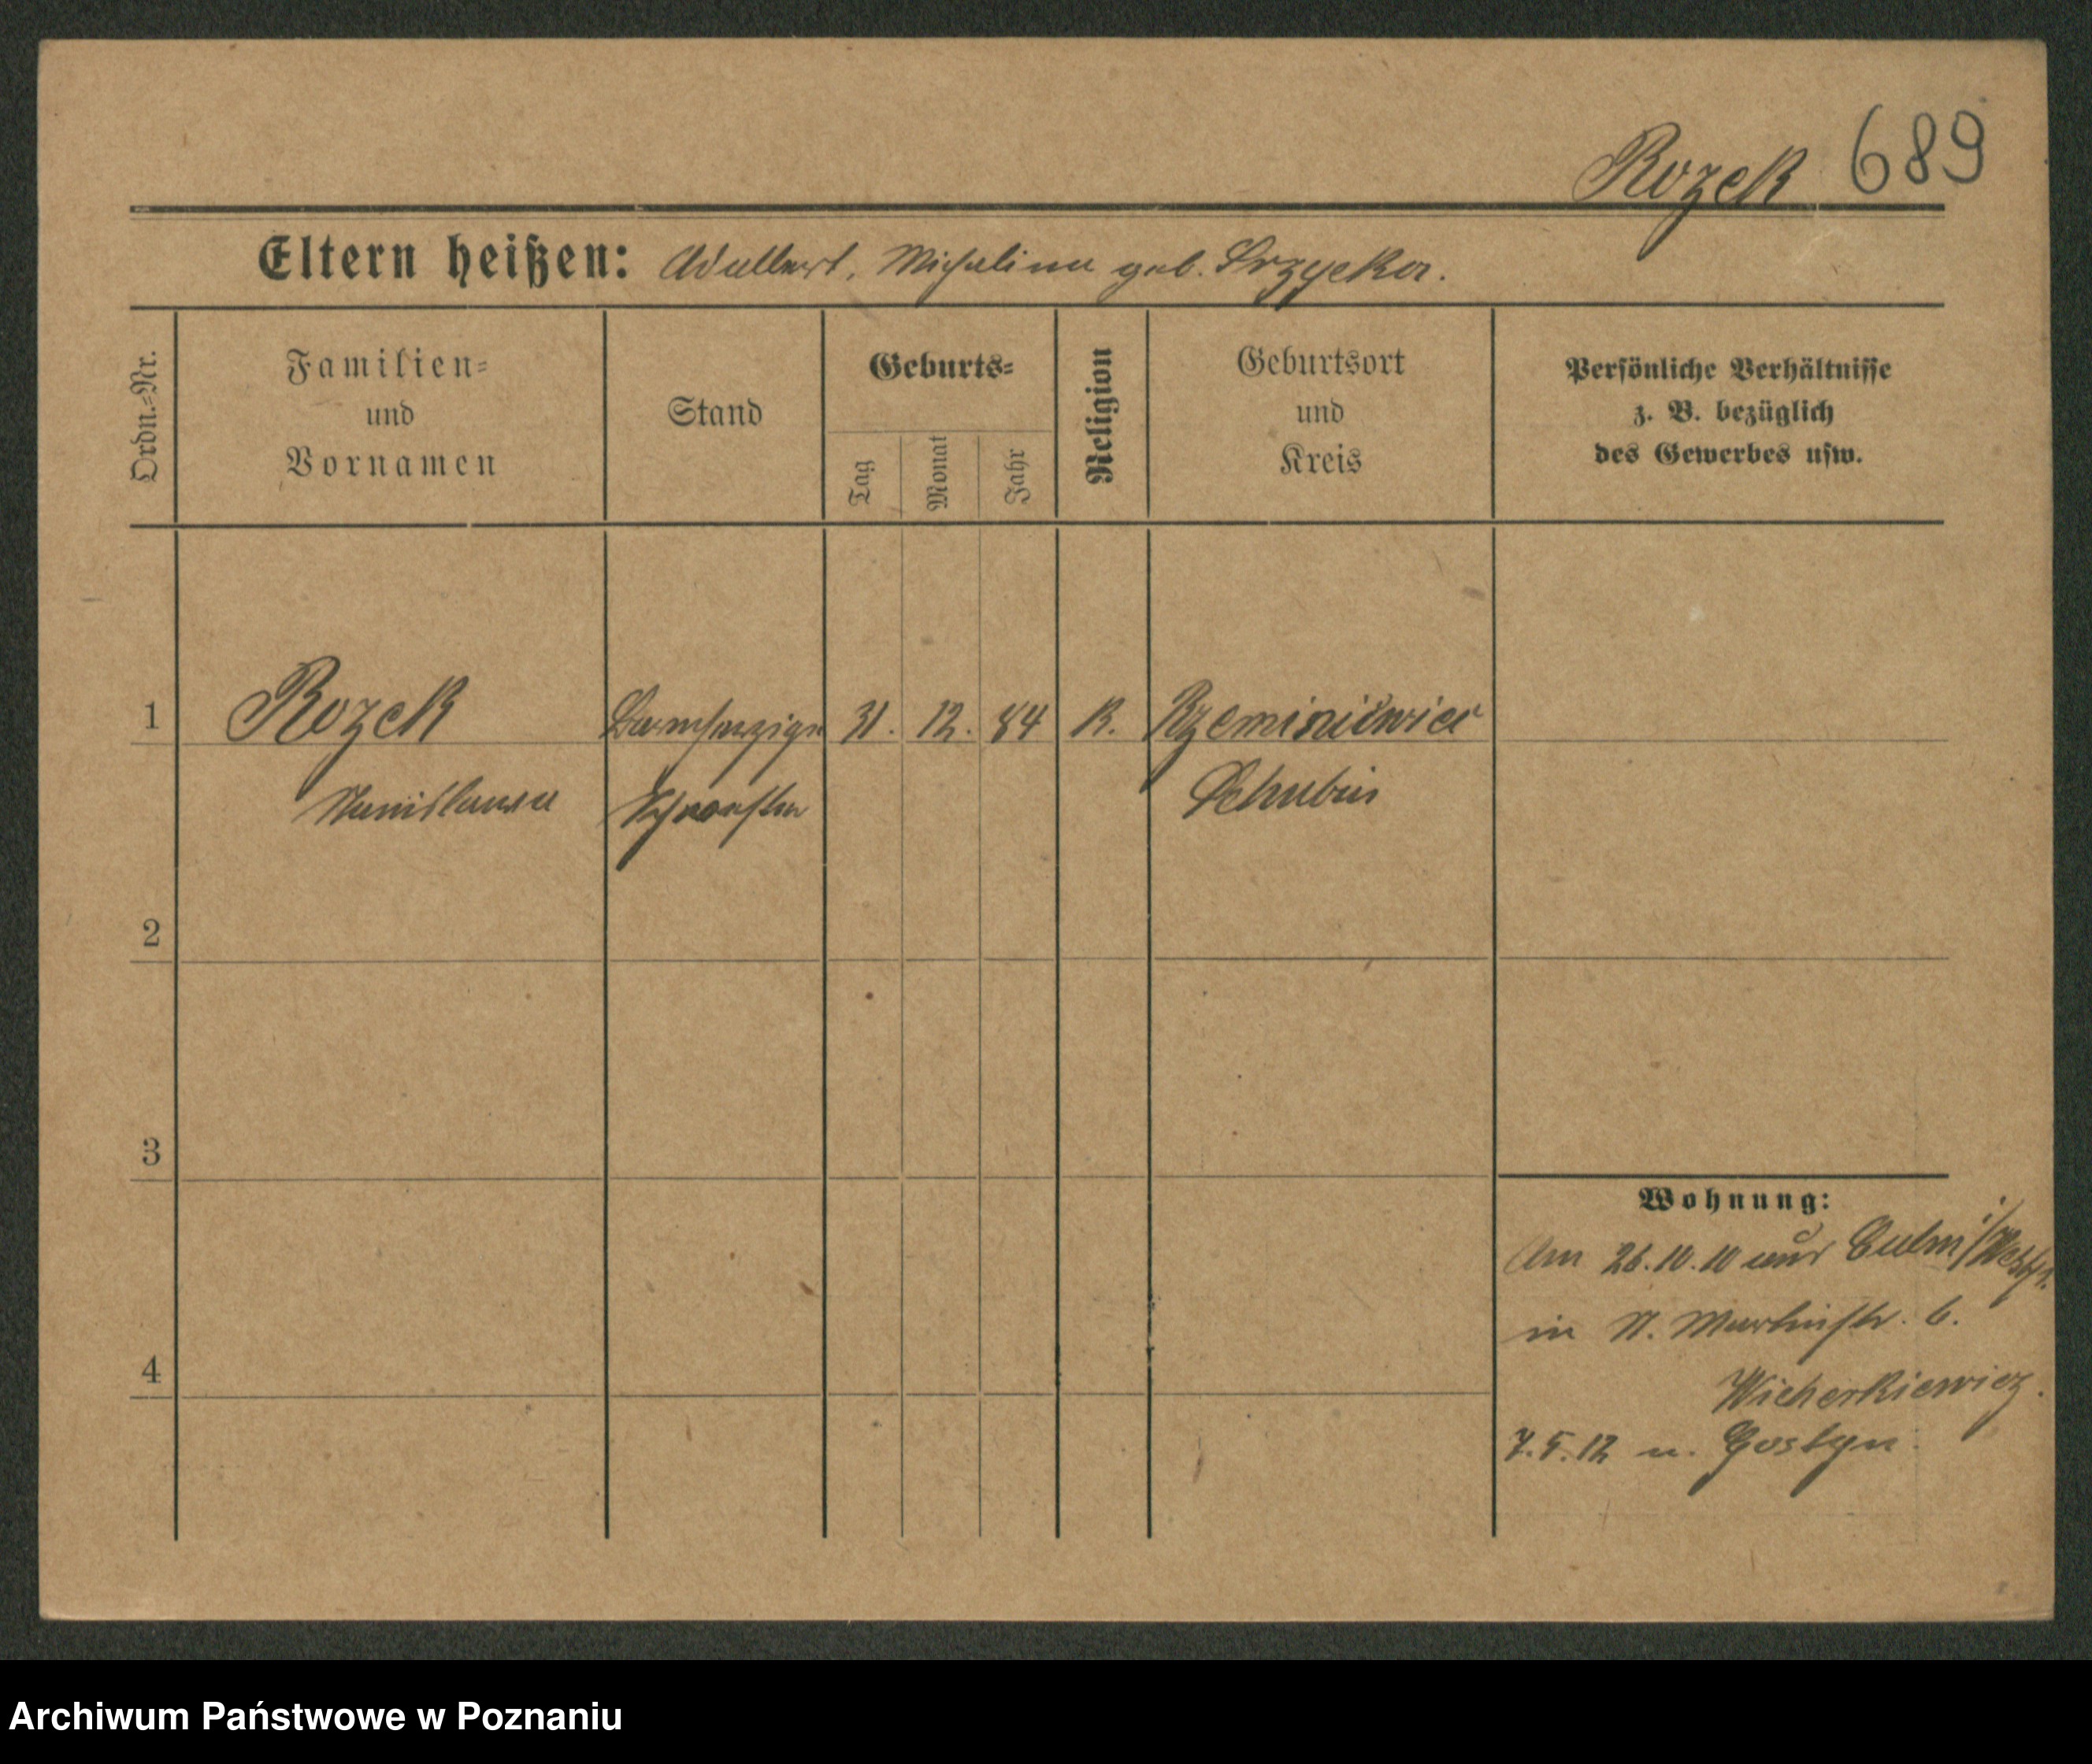 Rozek 689
Eltern heißen: Adalbert, Michalina geb. Srzycka.
Ordn.-Nr.
Familien-
und
Vornamen
Stand
Geburts-
Tag
Monat
Jahr
Religion
Geburtsort
und
Kreis
Persönliche Verhältnisse
z. B. bezüglich
des Gewerbes usw.
1
Rozek
Barmherzige
31. 12. 84
K.
Stanislawa
Schwester
Schubin
2
3
Wohnung:
Am 26.10.10 aus Culm i/Westpr.
in St. Martinstr. 6.
4
Wicherkiewicz.
7.5.12 n. Gostyn.
Archiwum Państwowe w Poznaniu